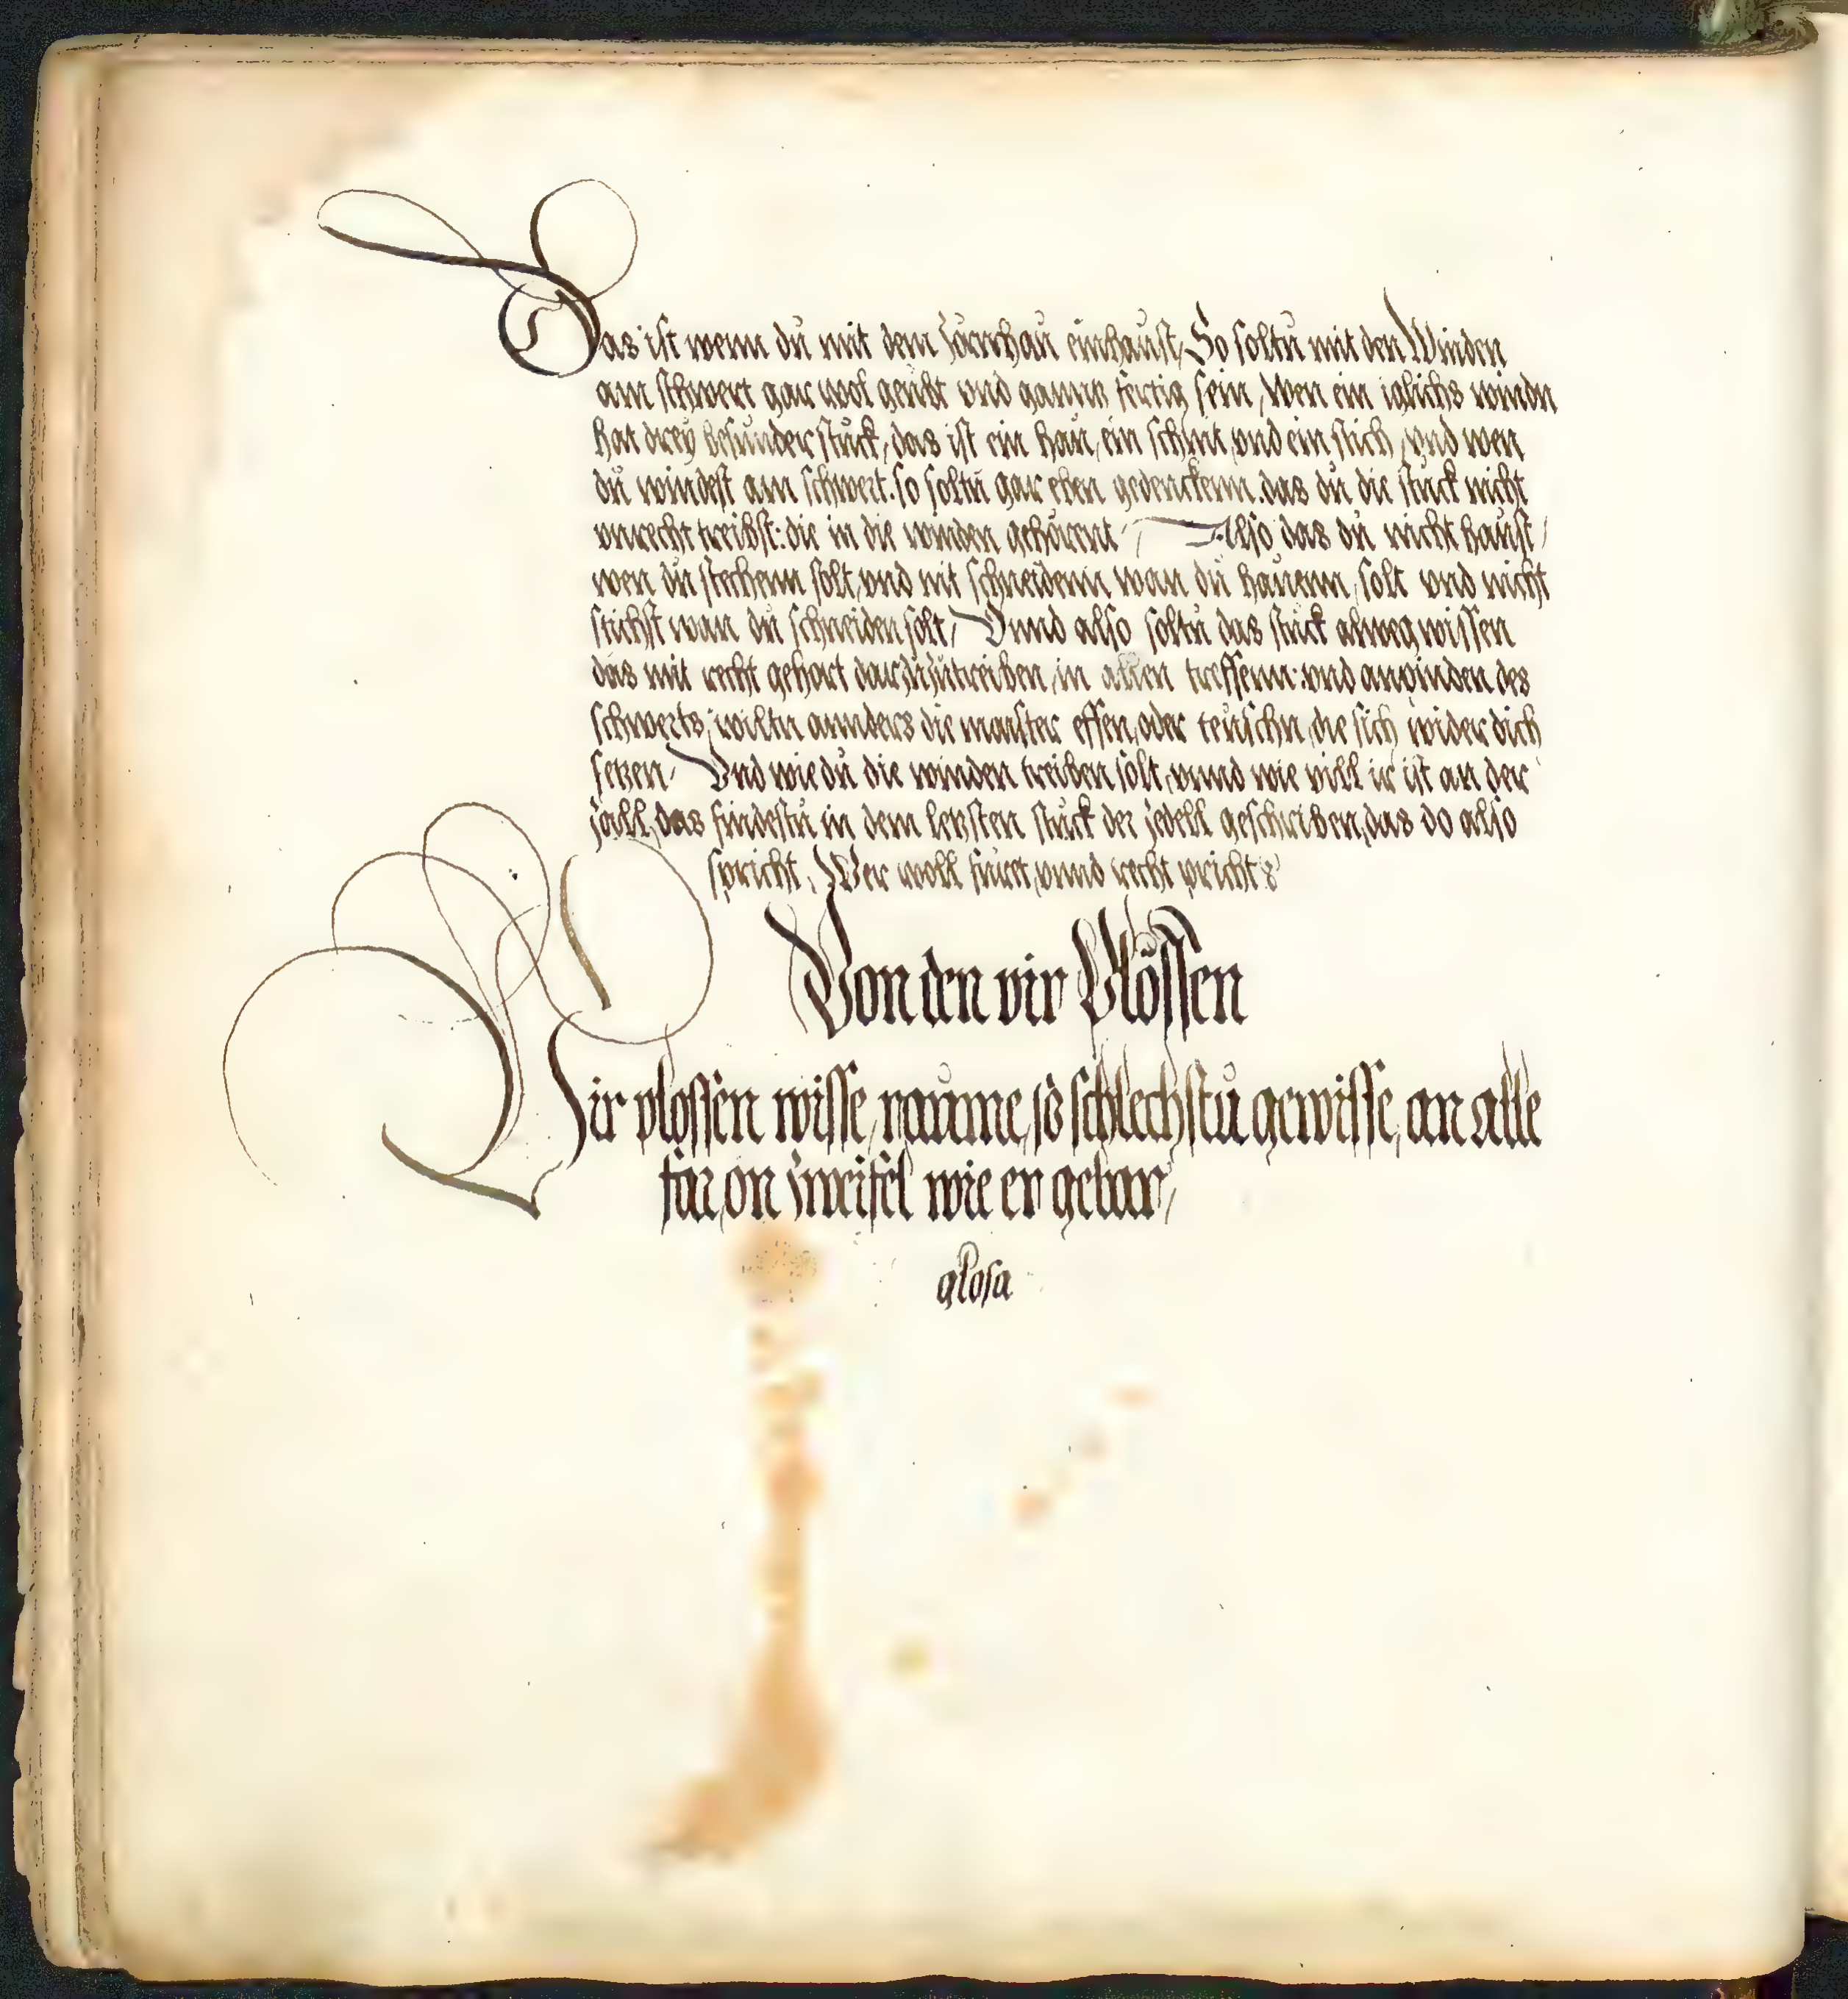 Das ist wenn dů mit dem zůrnhaů einhaůst, So soltů mit den Winden
am schwert gar wol geůbt vnd gannts fertig sein, Wen ein iglichs windn
hat drey besůnder stůck, das ist ein haů, ein schnit, vnd ein stich, vnd wen
dů windest am schwert. so soltů gar eben gedenckenn. das dů die stůck nicht
vnrecht treibst: die in die winden gehörent / Also das dů nicht haůst /
wen dů stechenn solt, vnd nit schneidenn wan dů haůenn, solt vnd nicht
stichst wan dů schneiden solt / Vnnd also soltů das stůck alweg wissen
das mit recht gehort darzůzůtreiben, in allen treffenn: vnd anpinden des
schwerts, wiltu annders die maister effen, oder teůschn, die sich wider dich
setzen / Vnd wie dů die winden treiben solt, vnnd wie vill ir ist an der
zall, das findestů in dem letzsten stůck der zedell geschriben, das do also
spricht, Wer woll fůret, vnnd recht pricht &
Von den vir Plössen
Vir plossen wisse, raůme, so schlechstů gewisse, an alle
far, on zweifel wie er gebar /
glosa